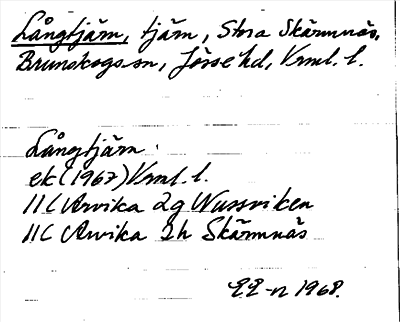 Långtjärn, tjärn, Stora Skärmnäs,
Brunskogs sn, Jösse hd, Vrml. l.
Långtjärn.
ek (1967) Vrml. l.
11C Arvika 2g Wussviken
11C Arvika 2h Skärmnäs
E.E-n 1968.